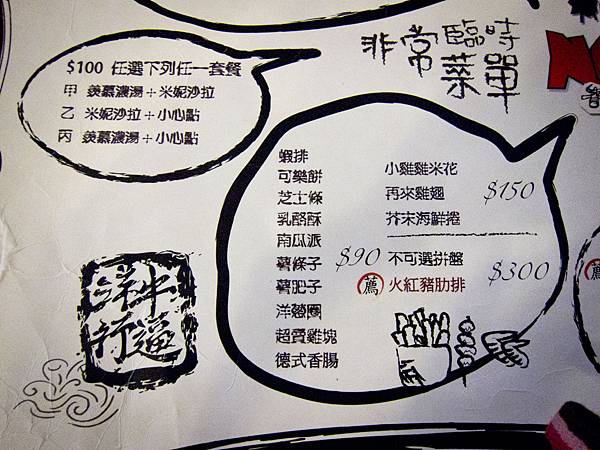 非常臨時
菜單
$100 任選下列任一套餐
甲 羨慕濃湯+米妮沙拉
乙 米妮沙拉+小心點
丙 羨慕濃湯+小心點
蝦排
可樂餅
芝士條
乳酪酥
南瓜派
薯條子
薯肥子
洋蔥圈
超賣雞塊
德式香腸
$90
小雞雞米花
再來雞翅
芥末海鮮捲
$150
不可選拼盤
薦 火紅豬肋排
$300